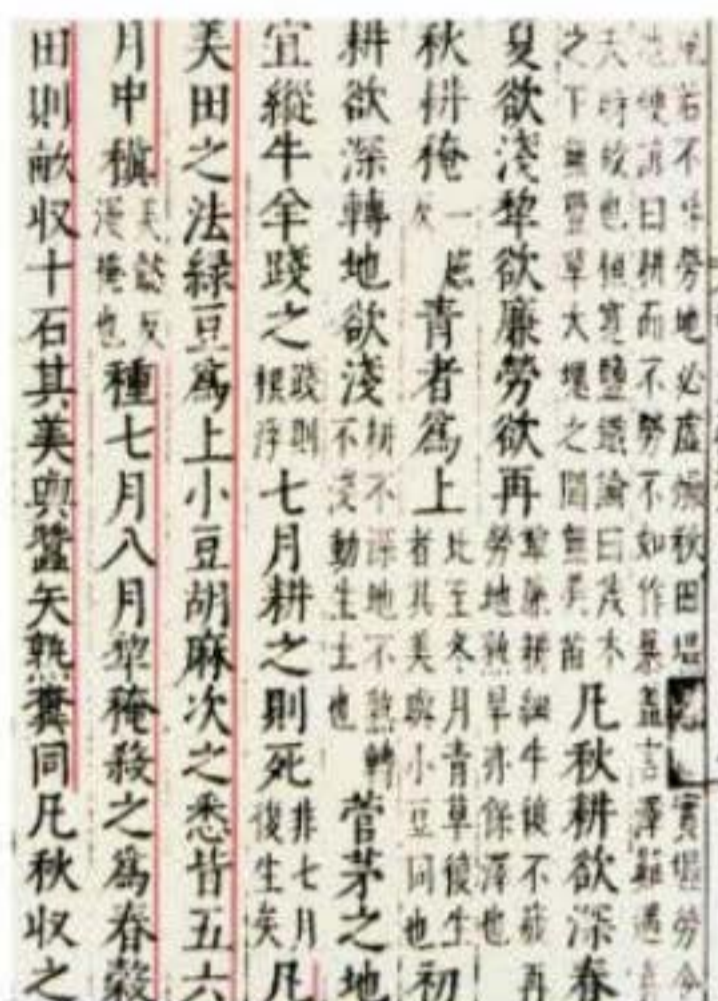 若不 勞地必虛燥秋田塌 實溼勞令
硬諺曰耕而不勞不如作暴蓋言澤難遇
天時故也桓寬鹽鐵論曰茂木
之下無豐草大塊之間無美苗
凡秋耕欲深春
夏欲淺犁欲廉勞欲再
犁廉耕細牛復不疲再
勞地熟旱亦保澤也
秋耕䅖
一感
反
青者爲上
比至冬月青草復生
者其美與小豆同也
初
耕欲深轉地欲淺
耕不深地不熟轉
不淺動生土也
菅茅之地
宜縱牛羊踐之
踐則
根浮
七月耕之則死
非七月
復生矣
凡
美田之法綠豆爲上小豆胡麻次之悉皆五六
月中稹
羙懿反
漫掩也
種七月八月犁䅖殺之爲春穀
田則畝收十石其美與蠶矢熟糞同凡秋收之